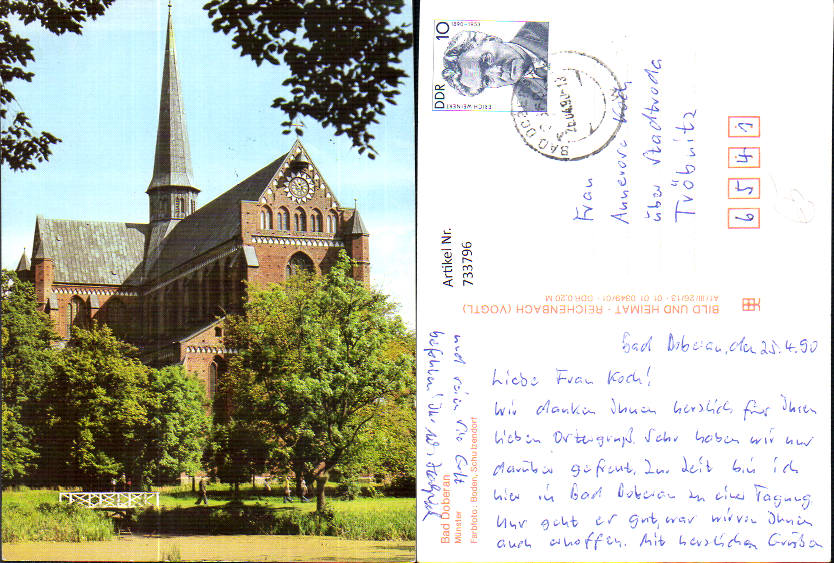 10
DDR
ERICH WEINERT
1890-1953
BAD DOBERAN
Frau
Annerose Koch
über Stadtroda
Tröbnitz
6541
Artikel Nr.
733796
BILD UND HEIMAT · REICHENBACH (VOGTL)
A1/III/26/13 · 01 01 0349/01 · DDR 0,20 M
Bad Doberan, den 25.4.90
Liebe Frau Koch!
Wir danken Ihnen herzlich für Ihren
lieben Ostergruß. Sehr haben wir uns
darüber gefreut. Zur Zeit bin ich
hier in Bad Doberan zu einer Tagung
Uns geht es gut, was wir von Ihnen
auch erhoffen. Mit herzlichen Grüßen
und seien Sie Gott
befohlen Ihr
Bad Doberan
Münster
Farbfoto: Boden, Schulzendorf